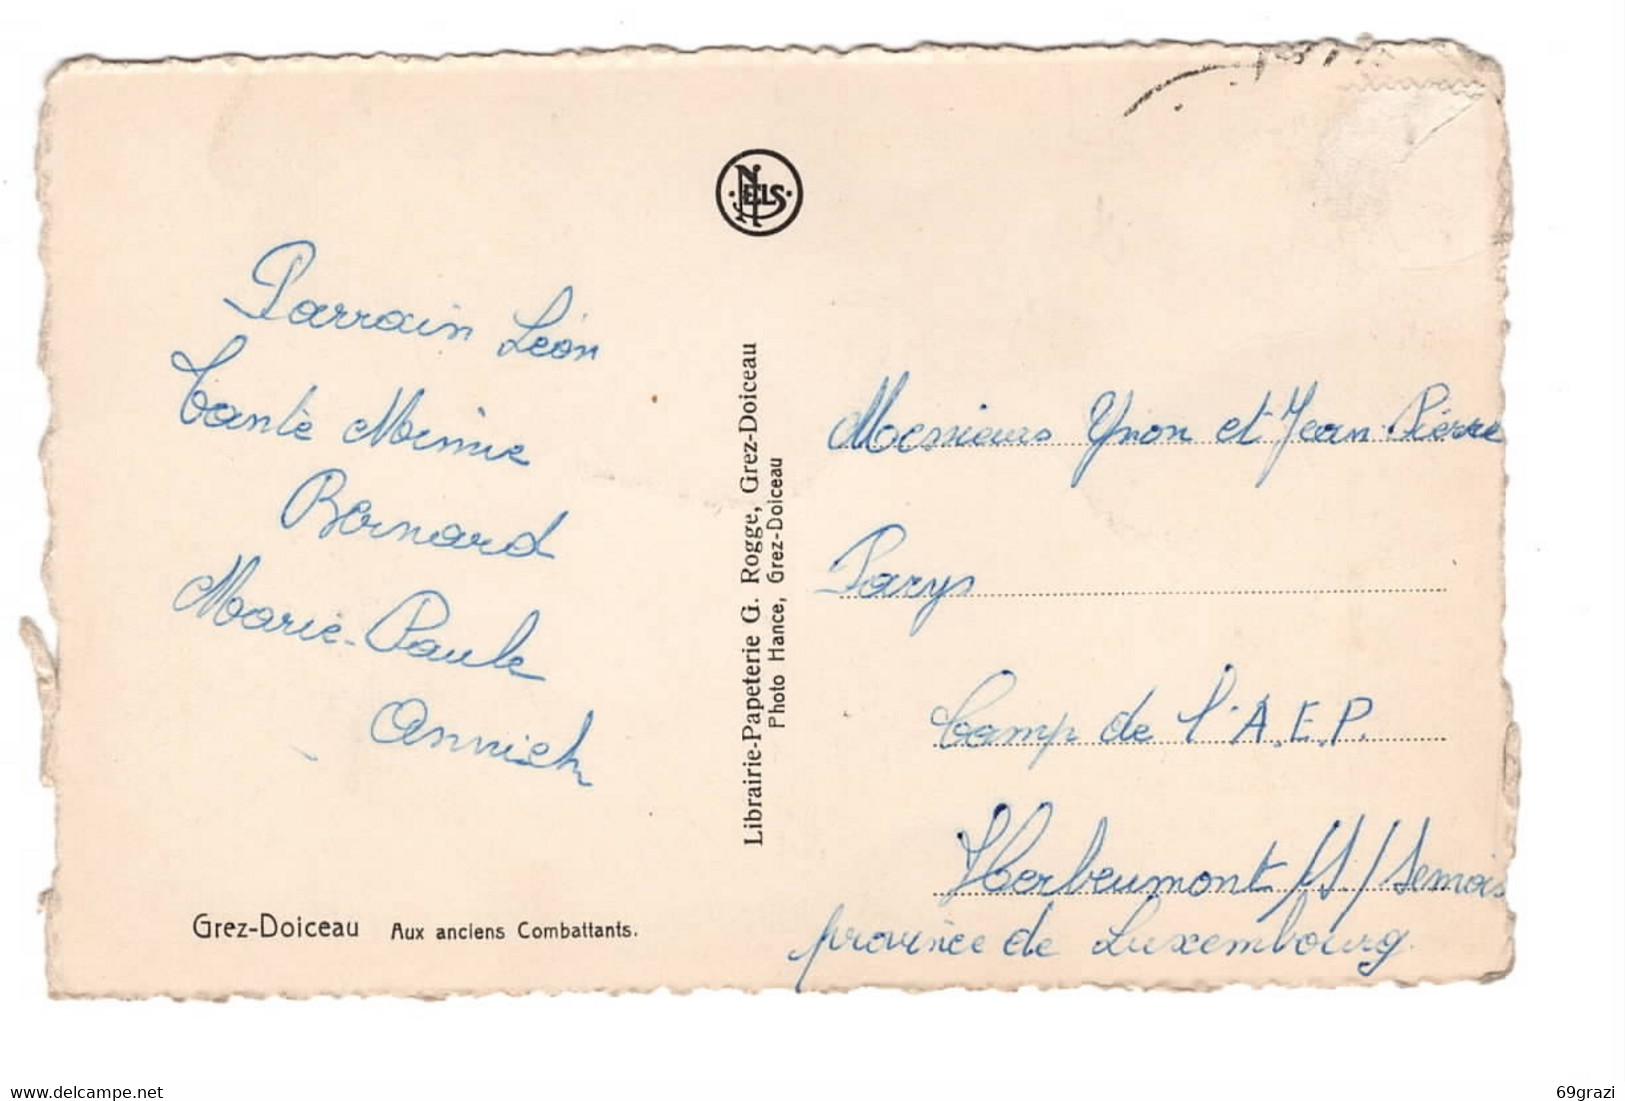 NELS
Parrain Léon
Tante Mimie
Bernard
Marie-Paule
Annick
Grez-Doiceau Aux anciens Combattants.
Librairie-Papeterie G. Rogge, Grez-Doiceau
Photo Hance, Grez-Doiceau
Messieurs Yvon et Jean Pierre
Parys
Camp de l'A.E.P.
Herbeumont /S/ Semois
province de Luxembourg.
www.delcampe.net
69grazi